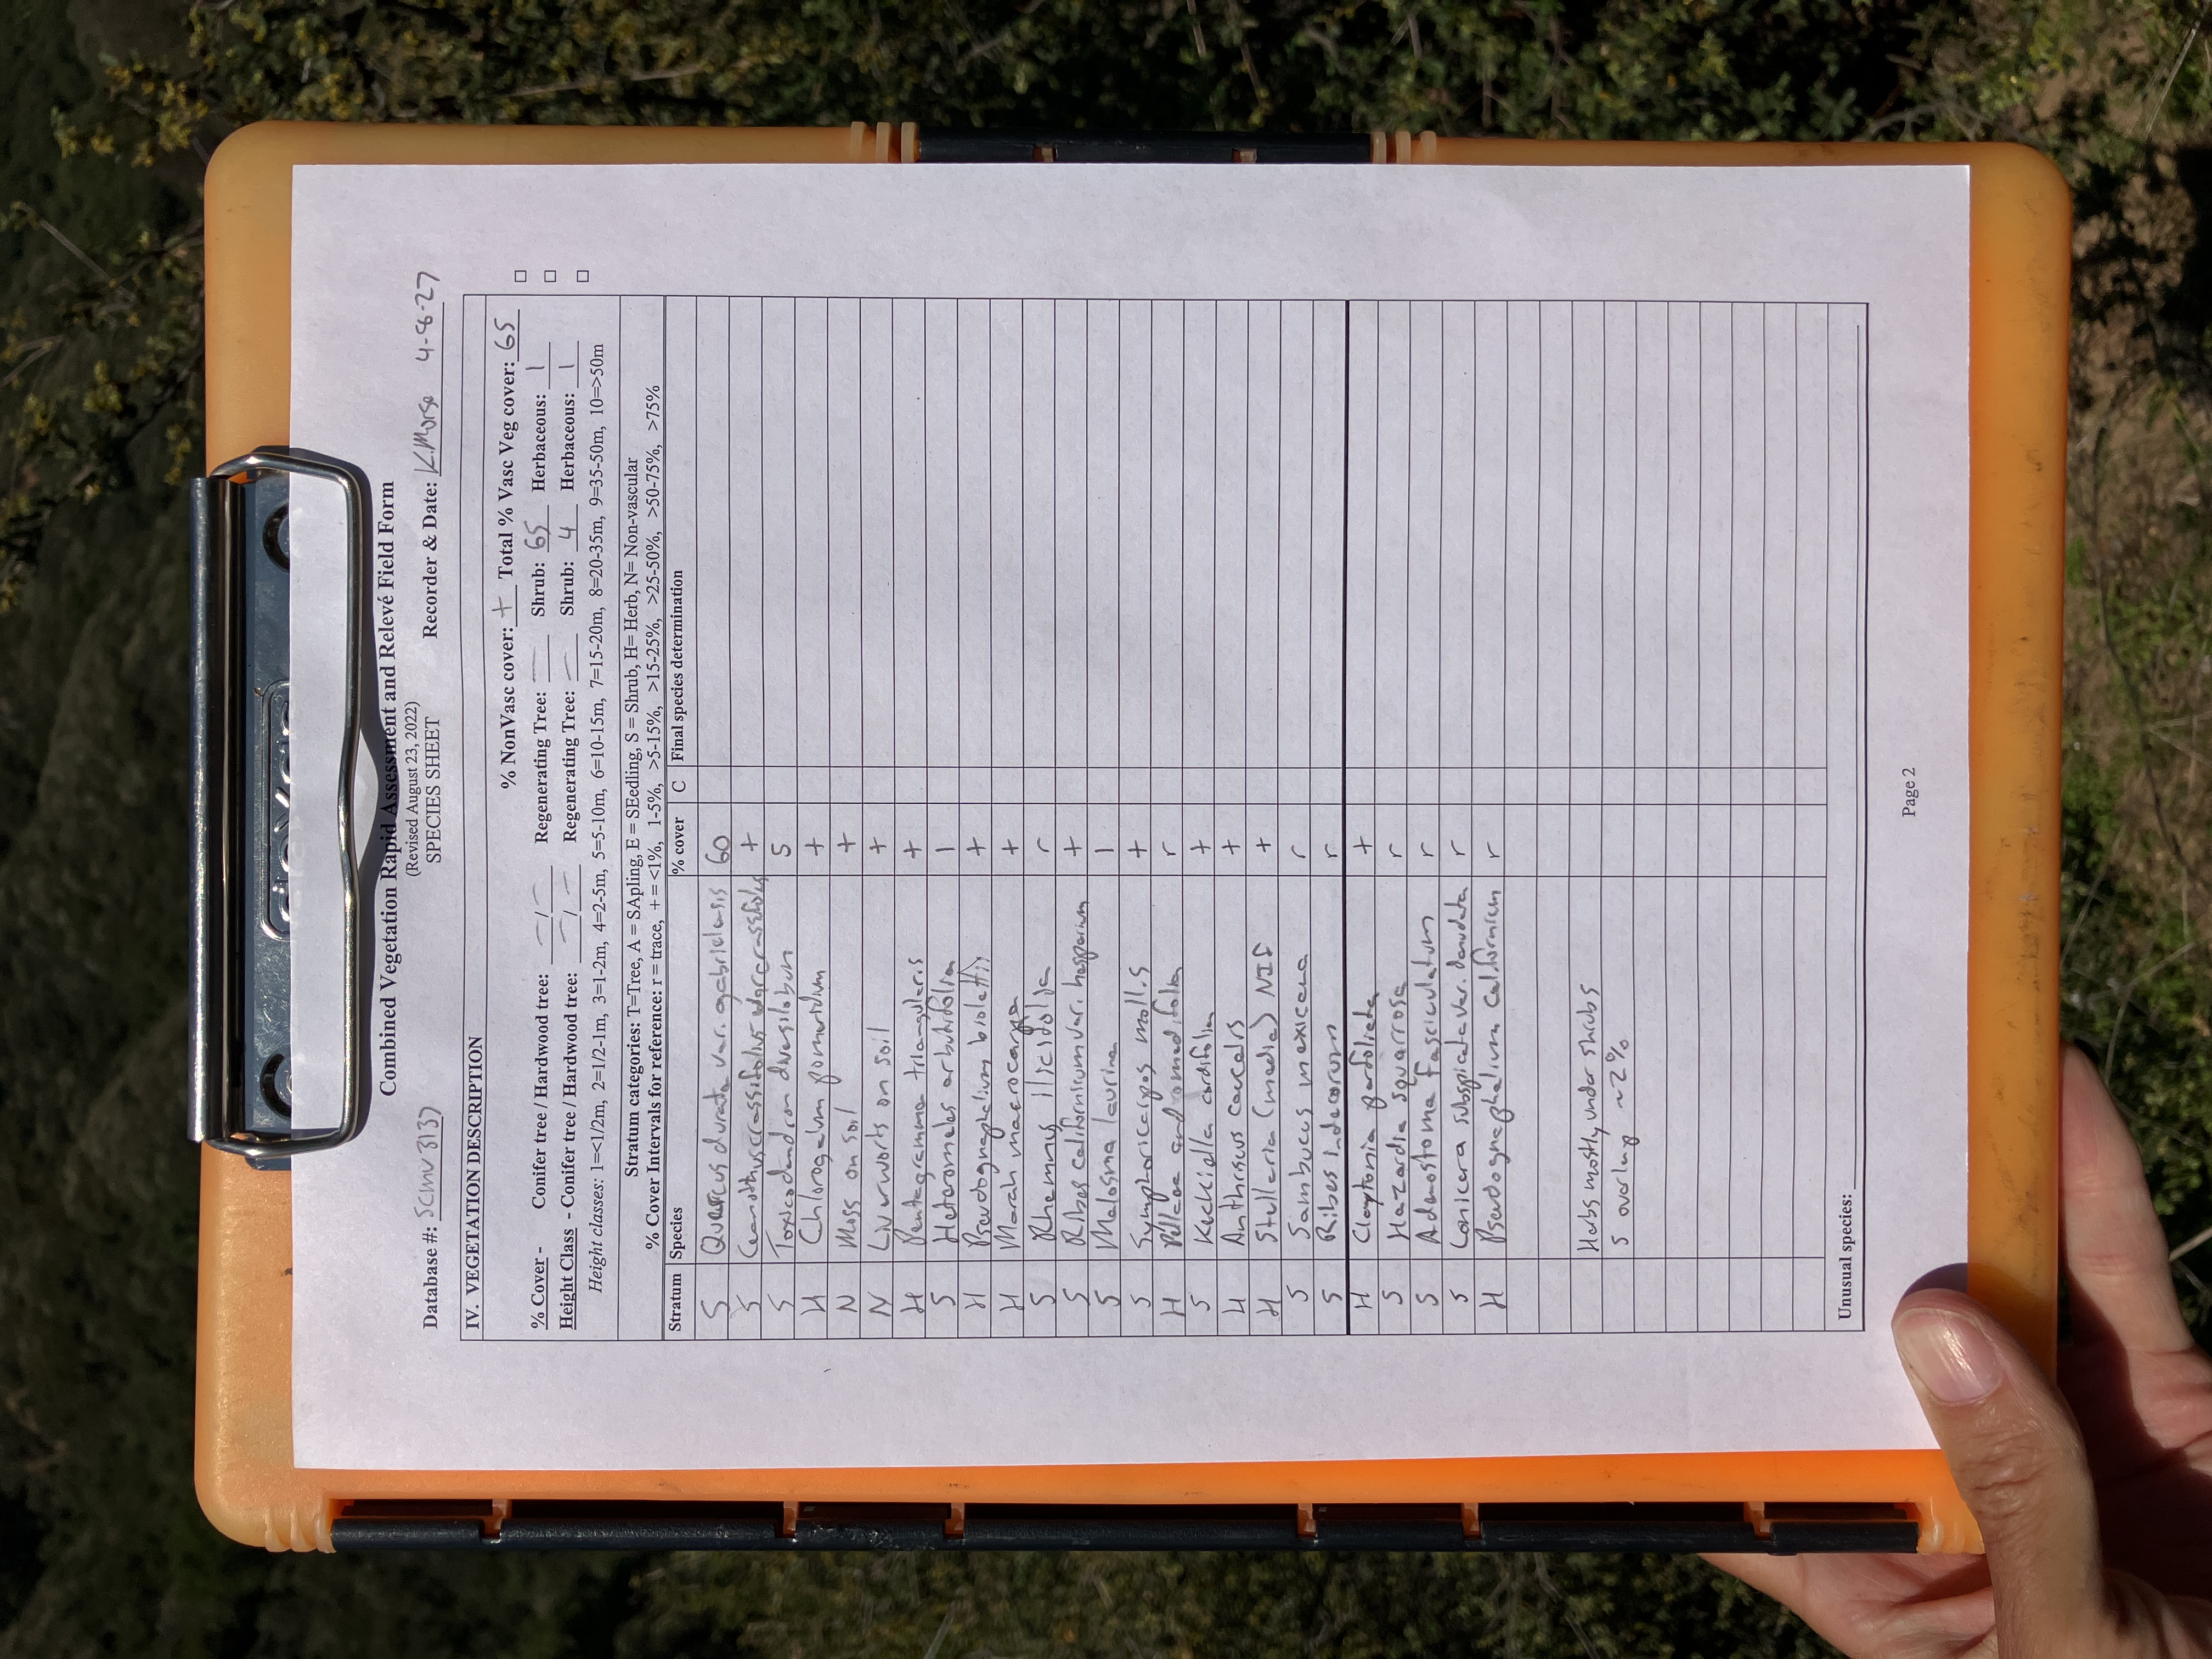 Combined Vegetation Rapid Assessment and Relevé Field Form
(Revised August 23, 2022)
SPECIES SHEET
Database #: SCMV3137 Recorder & Date: K.Morse 4-8-27
IV. VEGETATION DESCRIPTION
% NonVasc cover: + Total % Vasc Veg cover: 65
% Cover - Conifer tree / Hardwood tree: — / — Regenerating Tree: — Shrub: 65 Herbaceous: 1
Height Class - Conifer tree / Hardwood tree: — / — Regenerating Tree: — Shrub: 4 Herbaceous: 1
Height classes: 1=<1/2m, 2=1/2-1m, 3=1-2m, 4=2-5m, 5=5-10m, 6=10-15m, 7=15-20m, 8=20-35m, 9=35-50m, 10=>50m
Stratum categories: T=Tree, A = SApling, E = SEedling, S = Shrub, H= Herb, N= Non-vascular
% Cover Intervals for reference: r = trace, + = <1%, 1-5%, >5-15%, >15-25%, >25-50%, >50-75%, >75%
Stratum Species % cover C Final species determination
S Quercus durata var. gabrielensis 60
S Ceanothus crassifolius var crassifolius +
S Toxicodendron diversilobum 5
H Chlorogalum pomeridum +
N Moss on soil +
N Liverworts on soil +
H Pentagramma triangularis +
S Heteromeles arbutifolia 1
H Pseudognaphalium biolettii +
H Marah macrocarpa +
S Rhamnus ilicifolia r
S Ribes californicum var. hesperium +
S Malosma laurina 1
S Symphoricarpos mollis +
H Pellaea andromedifolia r
S Keckiella cordifolia +
H Anthriscus caucalis +
H Stellaria (media) NIF +
S Sambucus mexicana r
S Ribes indecorum r
H Claytonia perfoliata +
S Hazardia squarrosa r
S Adenostoma fasciculatum r
S Lonicera subspicata var. denudata r
H Pseudognaphalium californicum r
Herbs mostly under shrubs
S overlap ~2%
Unusual species:
Page 2